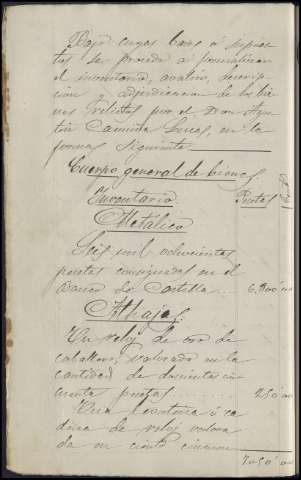 Bajo cuyas bases ó supues
tos se procede á formalizar
el inventario, avalúo, descrip
ción y adjudicacion de los bie
nes relictos por el Don Agus
tin Caminha Lucas, en la
forma siguiente
Cuerpo general de bienes.
Inventario Pesetas
Metálico
Seis mil ochocientas
pesetas consignadas en el
Banco de Castilla 6.800
Alhajas.
Un reloj de oro de
caballero, valorado en la
cantidad de doscientas cin
cuenta pesetas 250
Una leontina ó ca
dena de reloj valora
da en ciento cincuen
7050